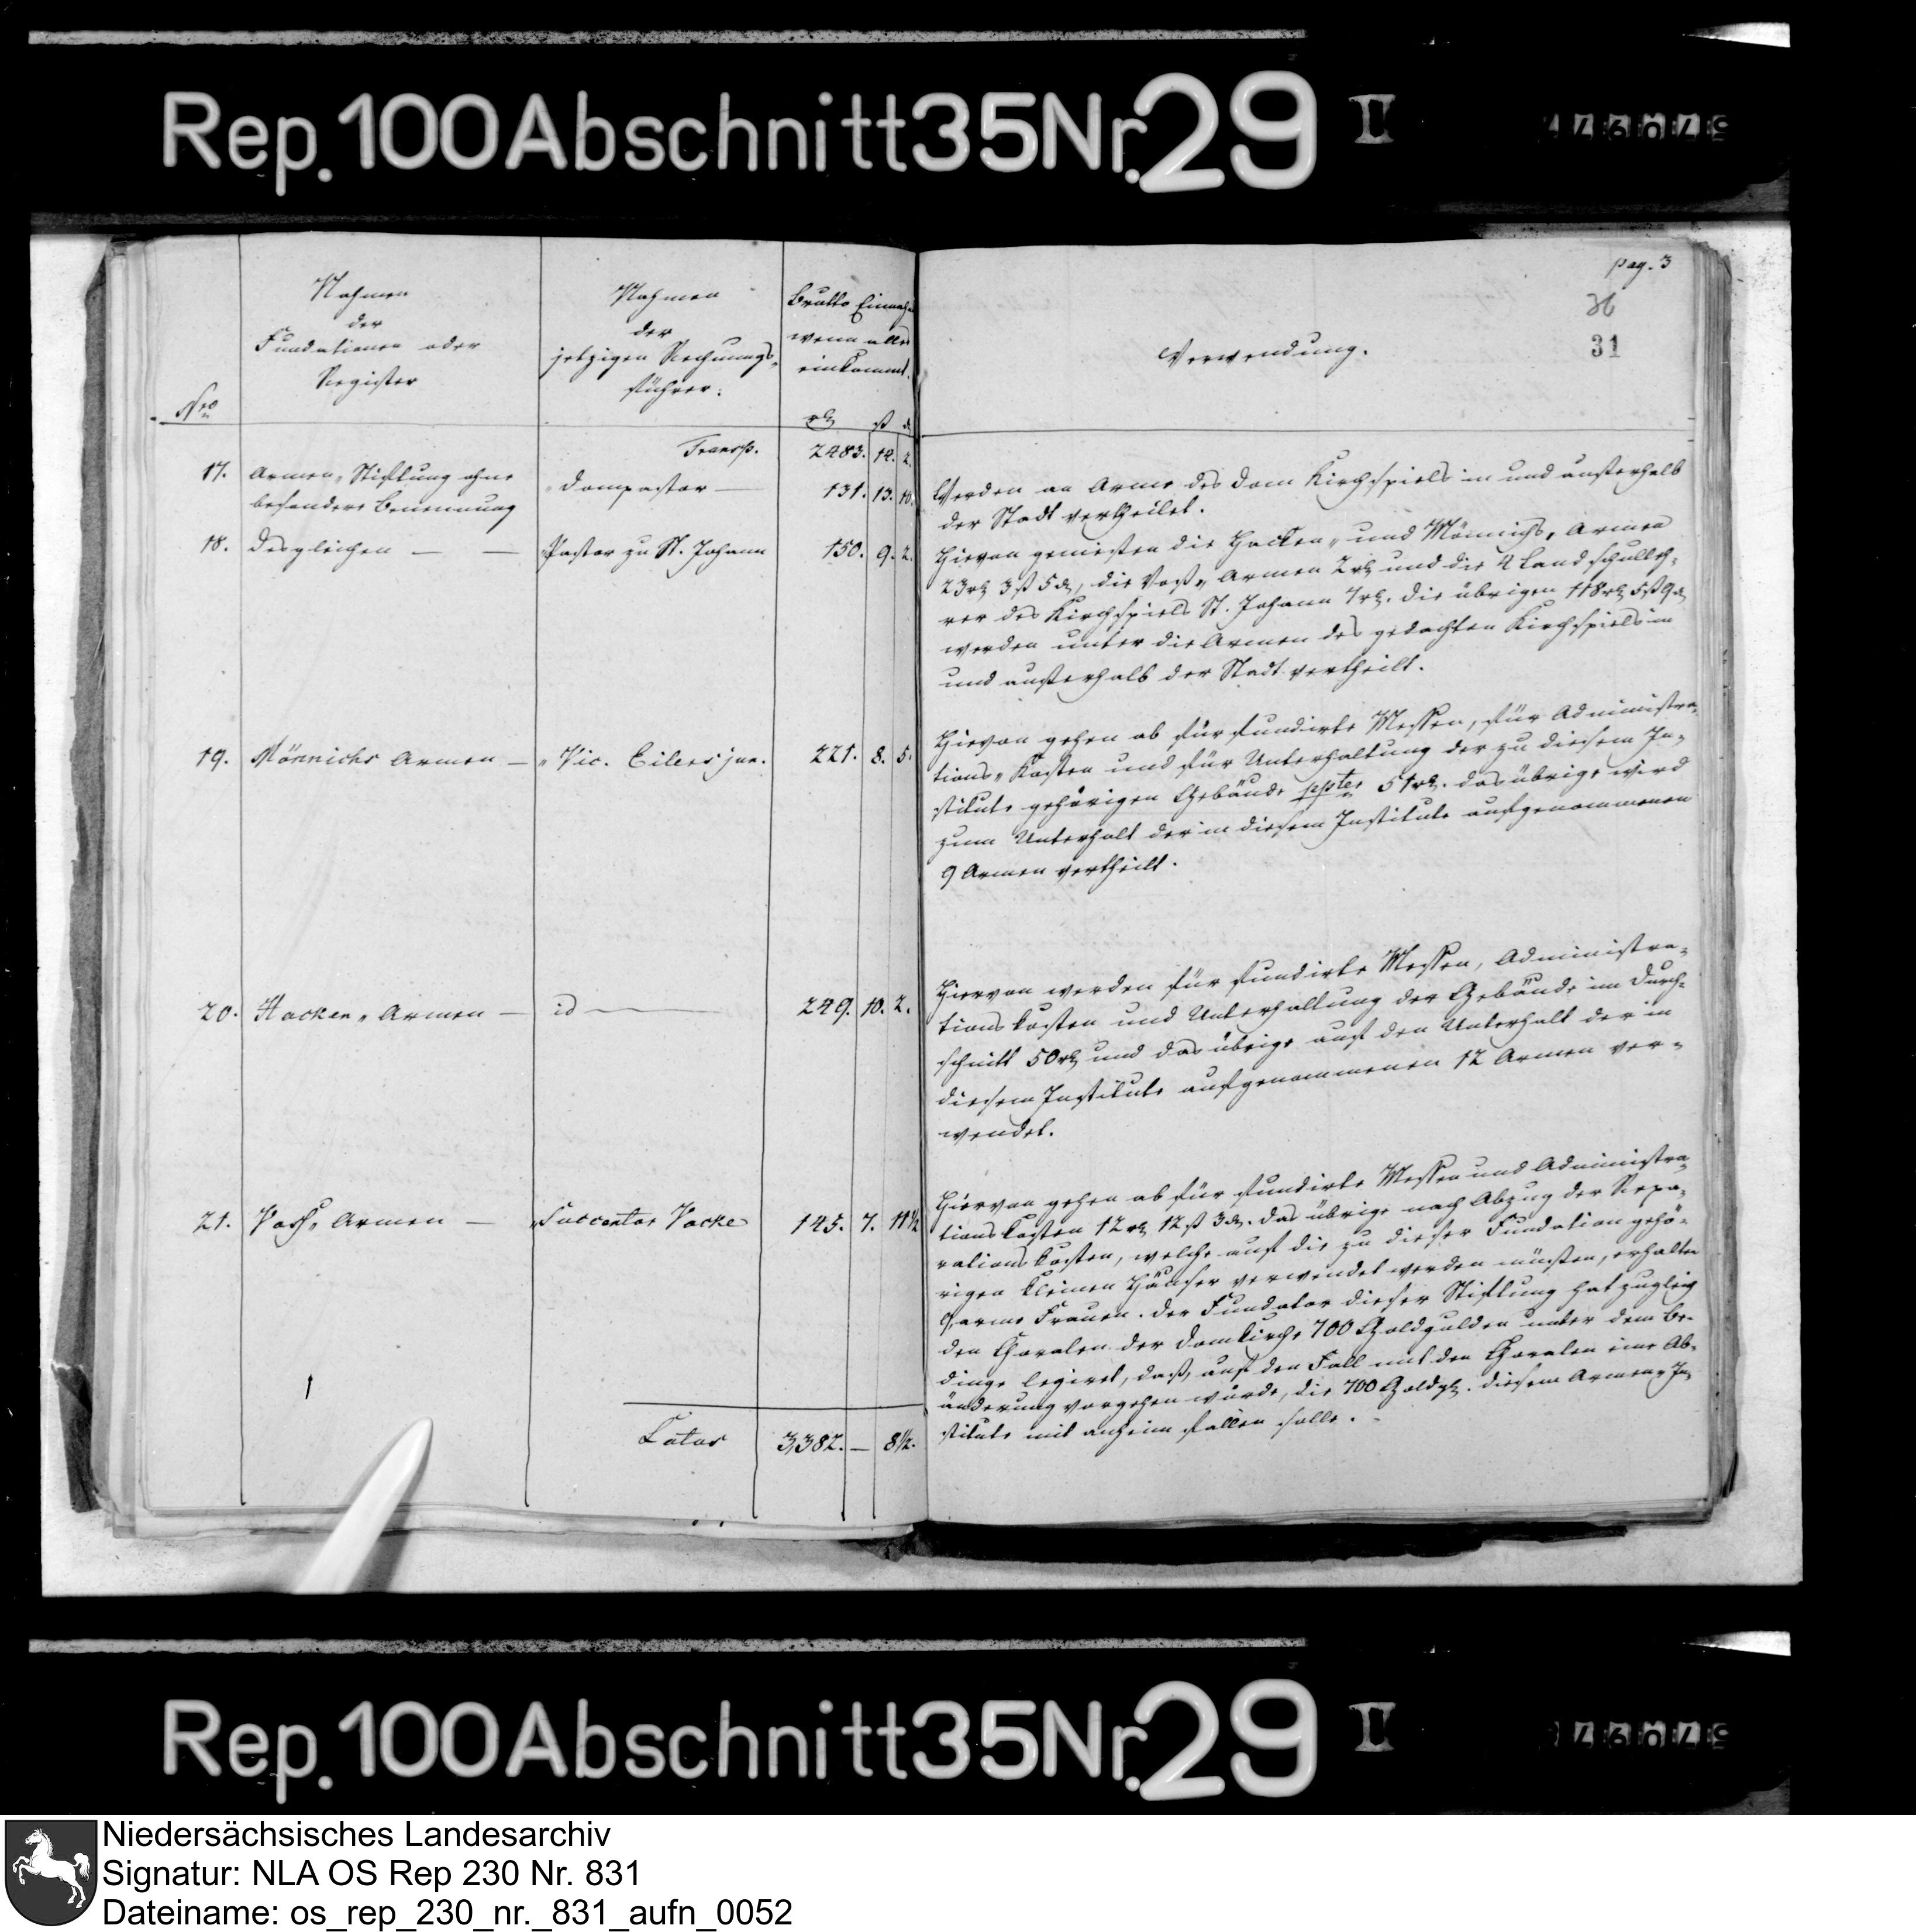 Rep. 100 Abschnitt 35 Nr. 29 I
pag. 3
31
Nro
Nahmen
der
Fundationen oder
Register
Nahmen
der
jetzigen Rechnungs-
führer.
Brutto Einnahme
wenn alles
einkommt.
rth ß d
Verwendung.
Transp. 2483. 14. 2.
17. Armen-Stiftung ohne
besondere Benennung
Dompastor — 131. 13. 10.
Werden an Arme des Dom Kirchspiels in und außerhalb
der Stadt vertheilet.
18. Desgleichen — —
Pastor zu St. Johann 150. 9. 2.
Hievon genießen die Hacken- und Mönnichs-Armen
23 rth 3 ß 5 d, die Voß-Armen 2 rth und die 4 Landschulleh-
rer des Kirchspiels St. Johann 7 rth. die übrigen 118 rth 5 ß 9 d
werden unter die Armen des gedachten Kirchspiels in
und außerhalb der Stadt vertheilt.
19. Mönnichs Armen — Vic. Eilers jun. 221. 8. 5.
Hievon gehen ab für fundirte Messen, für Administra-
tions-Kosten und für Unterhaltung der zu diesem In-
stitute gehörigen Gebäude ppter 51 rth. das übrige wird
zum Unterhalt der in diesem Institute aufgenommenen
9 Armen vertheilt.
20. Hacken-Armen — id — 249. 10. 2.
Hiervon werden für fundirte Messen, Administra-
tionskosten und Unterhaltung der Gebäude im Durch-
schnitt 50 rth und das übrige auf den Unterhalt der in
diesem Institute aufgenommenen 12 Armen ver-
wendet.
21. Voß-Armen — Succentor Vocke 145. 7. 11½
Hiervon gehen ab für fundirte Messen und Administra-
tionskosten 12 rth 12 ß 3 d. das übrige nach Abzug der Repa-
rationskosten, welche auf die zu dieser Fundation gehö-
rigen kleinen Häuser verwendet werden müssen, erhalten
9 arme Frauen. Der Fundator dieser Stiftung hat zugleich
den Choralen der Domkirche 700 Goldgulden unter dem Be-
dinge legiret, daß, auf den Fall mit den Choralen eine Ab-
änderung vorgehen würde, die 700 Goldgl. diesem Armen-In-
stitute mit anheim fallen solle.
Latus 3,382. — 8½.
Rep. 100 Abschnitt 35 Nr. 29 I
Niedersächsisches Landesarchiv
Signatur: NLA OS Rep 230 Nr. 831
Dateiname: os_rep_230_nr._831_aufn_0052